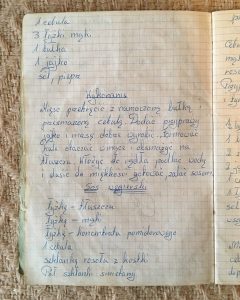 1 cebula
3 łyżki mąki
1 bułka
1 jajko
sól, pieprz
Wykonanie
Mięso przekręcić z namoczoną bułką i
przesmażoną cebulą. Dodać przyprawy
jajko i masę dobrze wyrobić, formować
kule otaczać w mące i obsmażyć na
tłuszczu. Włożyć do rądla podlać wody
i dusić do miękkości gotować zalać sosem.
Sos węgierski
łyżkę - tłuszczu
łyżkę - mąki
łyżkę - koncentratu pomidorowego
1 cebula
szklankę rosołu z kostki
Pół szklanki śmietany